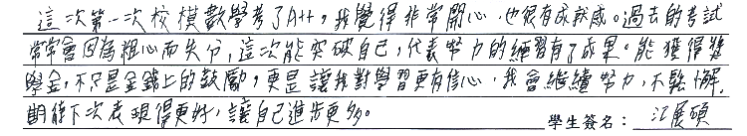 這次第一次校模數學考了A++，我覺得非常開心，也很有成就感。過去的考試
常常會因為粗心而失分，這次能突破自己，代表努力的練習有了成果。能獲得獎
學金，不只是金錢上的鼓勵，更是讓我對學習更有信心，我會繼續努力，不鬆懈，
期待下次表現得更好，讓自己進步更多。
學生簽名： 江展碩